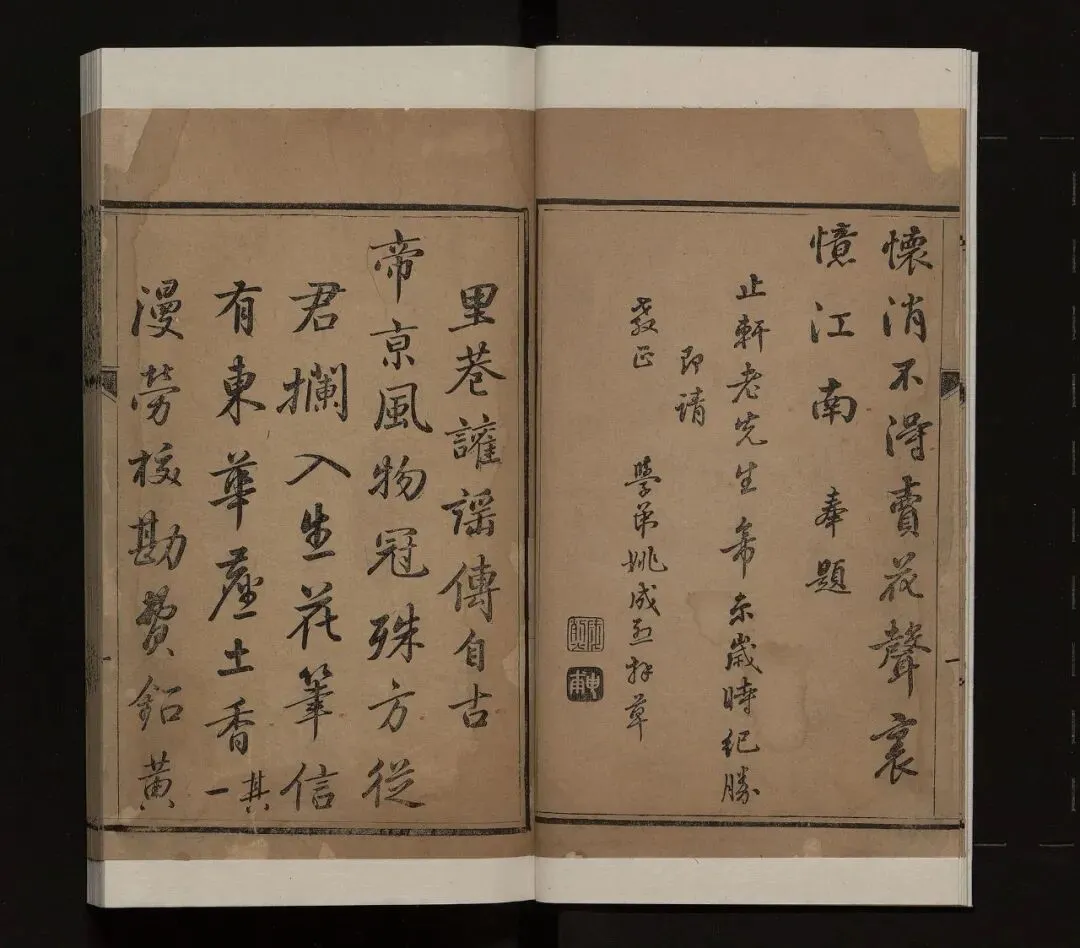 懷消不得賣花聲裏
憶江南 奉題
止軒老先生帝京歲時紀勝
即請
教正
學弟姚成烈拜草
申甫
里巷讙謡傳自古
帝京風物冠殊方從
君攔入生花筆信
有東華塵土香 其一
漫勞校勘費鉛黃